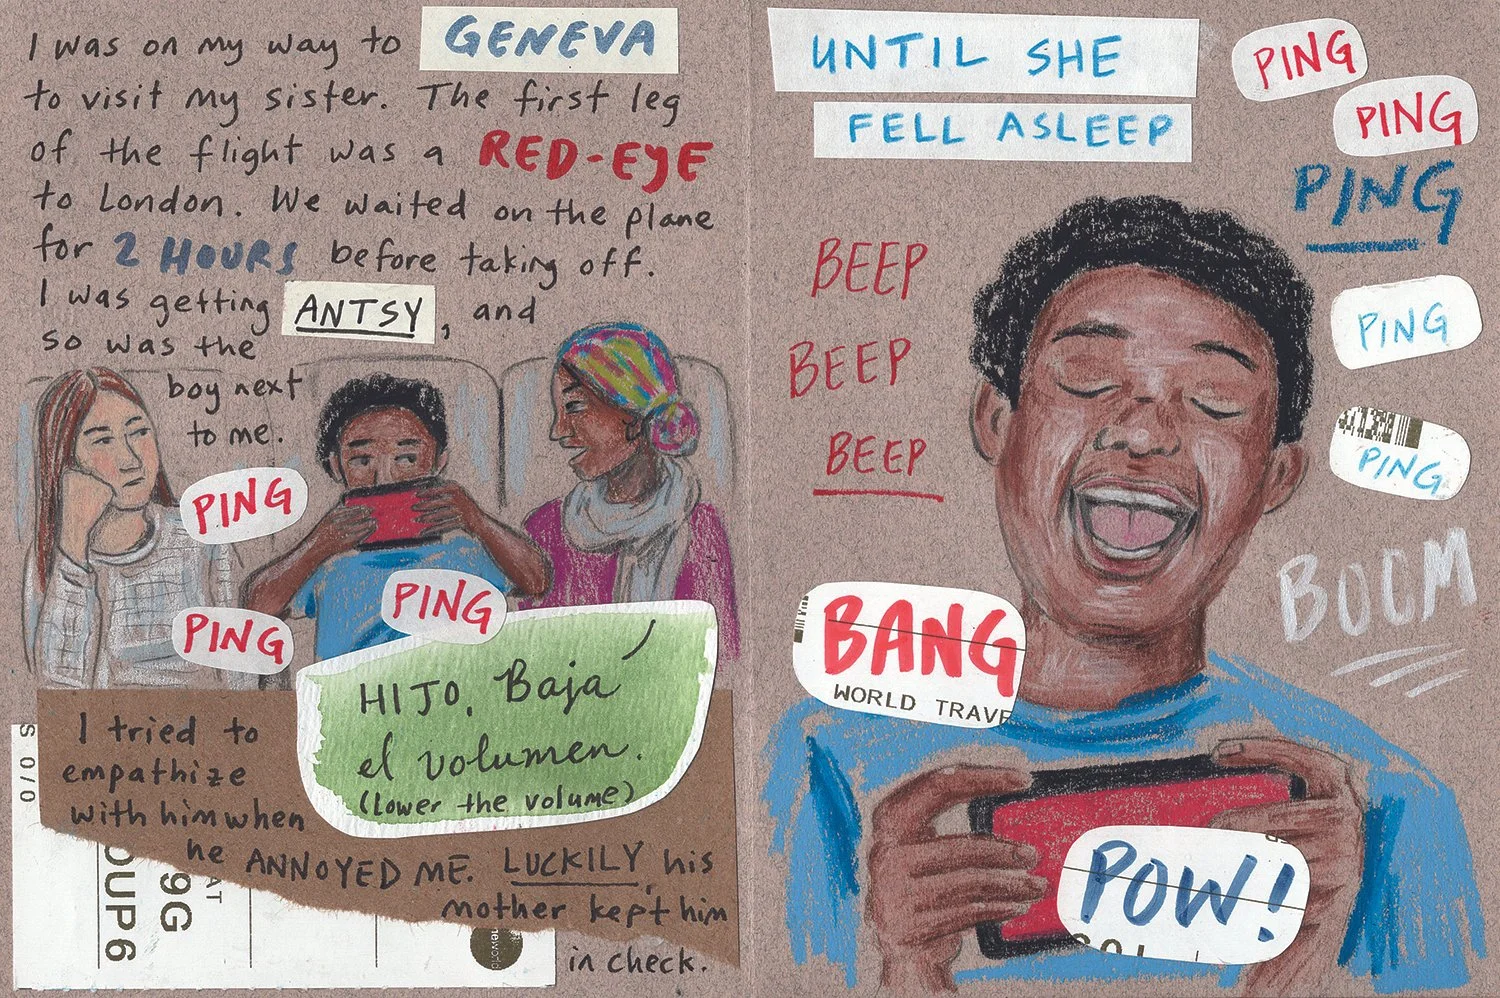 I was on my way to GENEVA
to visit my sister. The first leg
of the flight was a RED-EYE
to London. We waited on the plane
for 2 HOURS before taking off.
I was getting ANTSY, and
so was the
boy next
to me.
PING
PING
PING
HIJO, Baja
el volumen.
(lower the volume)
I tried to
empathize
with him when
he ANNOYED ME. LUCKILY, his
mother kept him
in check.
S 0/0
OUP 6
9G
AT
neworld
UNTIL SHE
FELL ASLEEP
PING
PING
PING
PING
PING
BEEP
BEEP
BEEP
BOOM
BANG
WORLD TRAVE
POW!